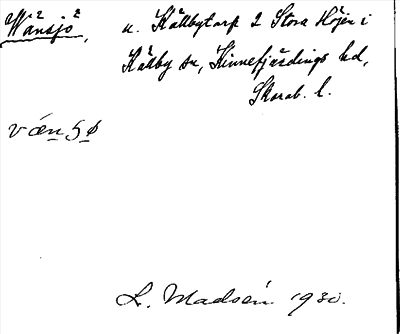 Wänsjö, u. Källbytorp 2 Stora Höjen i
Källby sn, Kinnefjärdings hd,
Skarab. l.
vä́n ʃø
L. Madsén 1930.